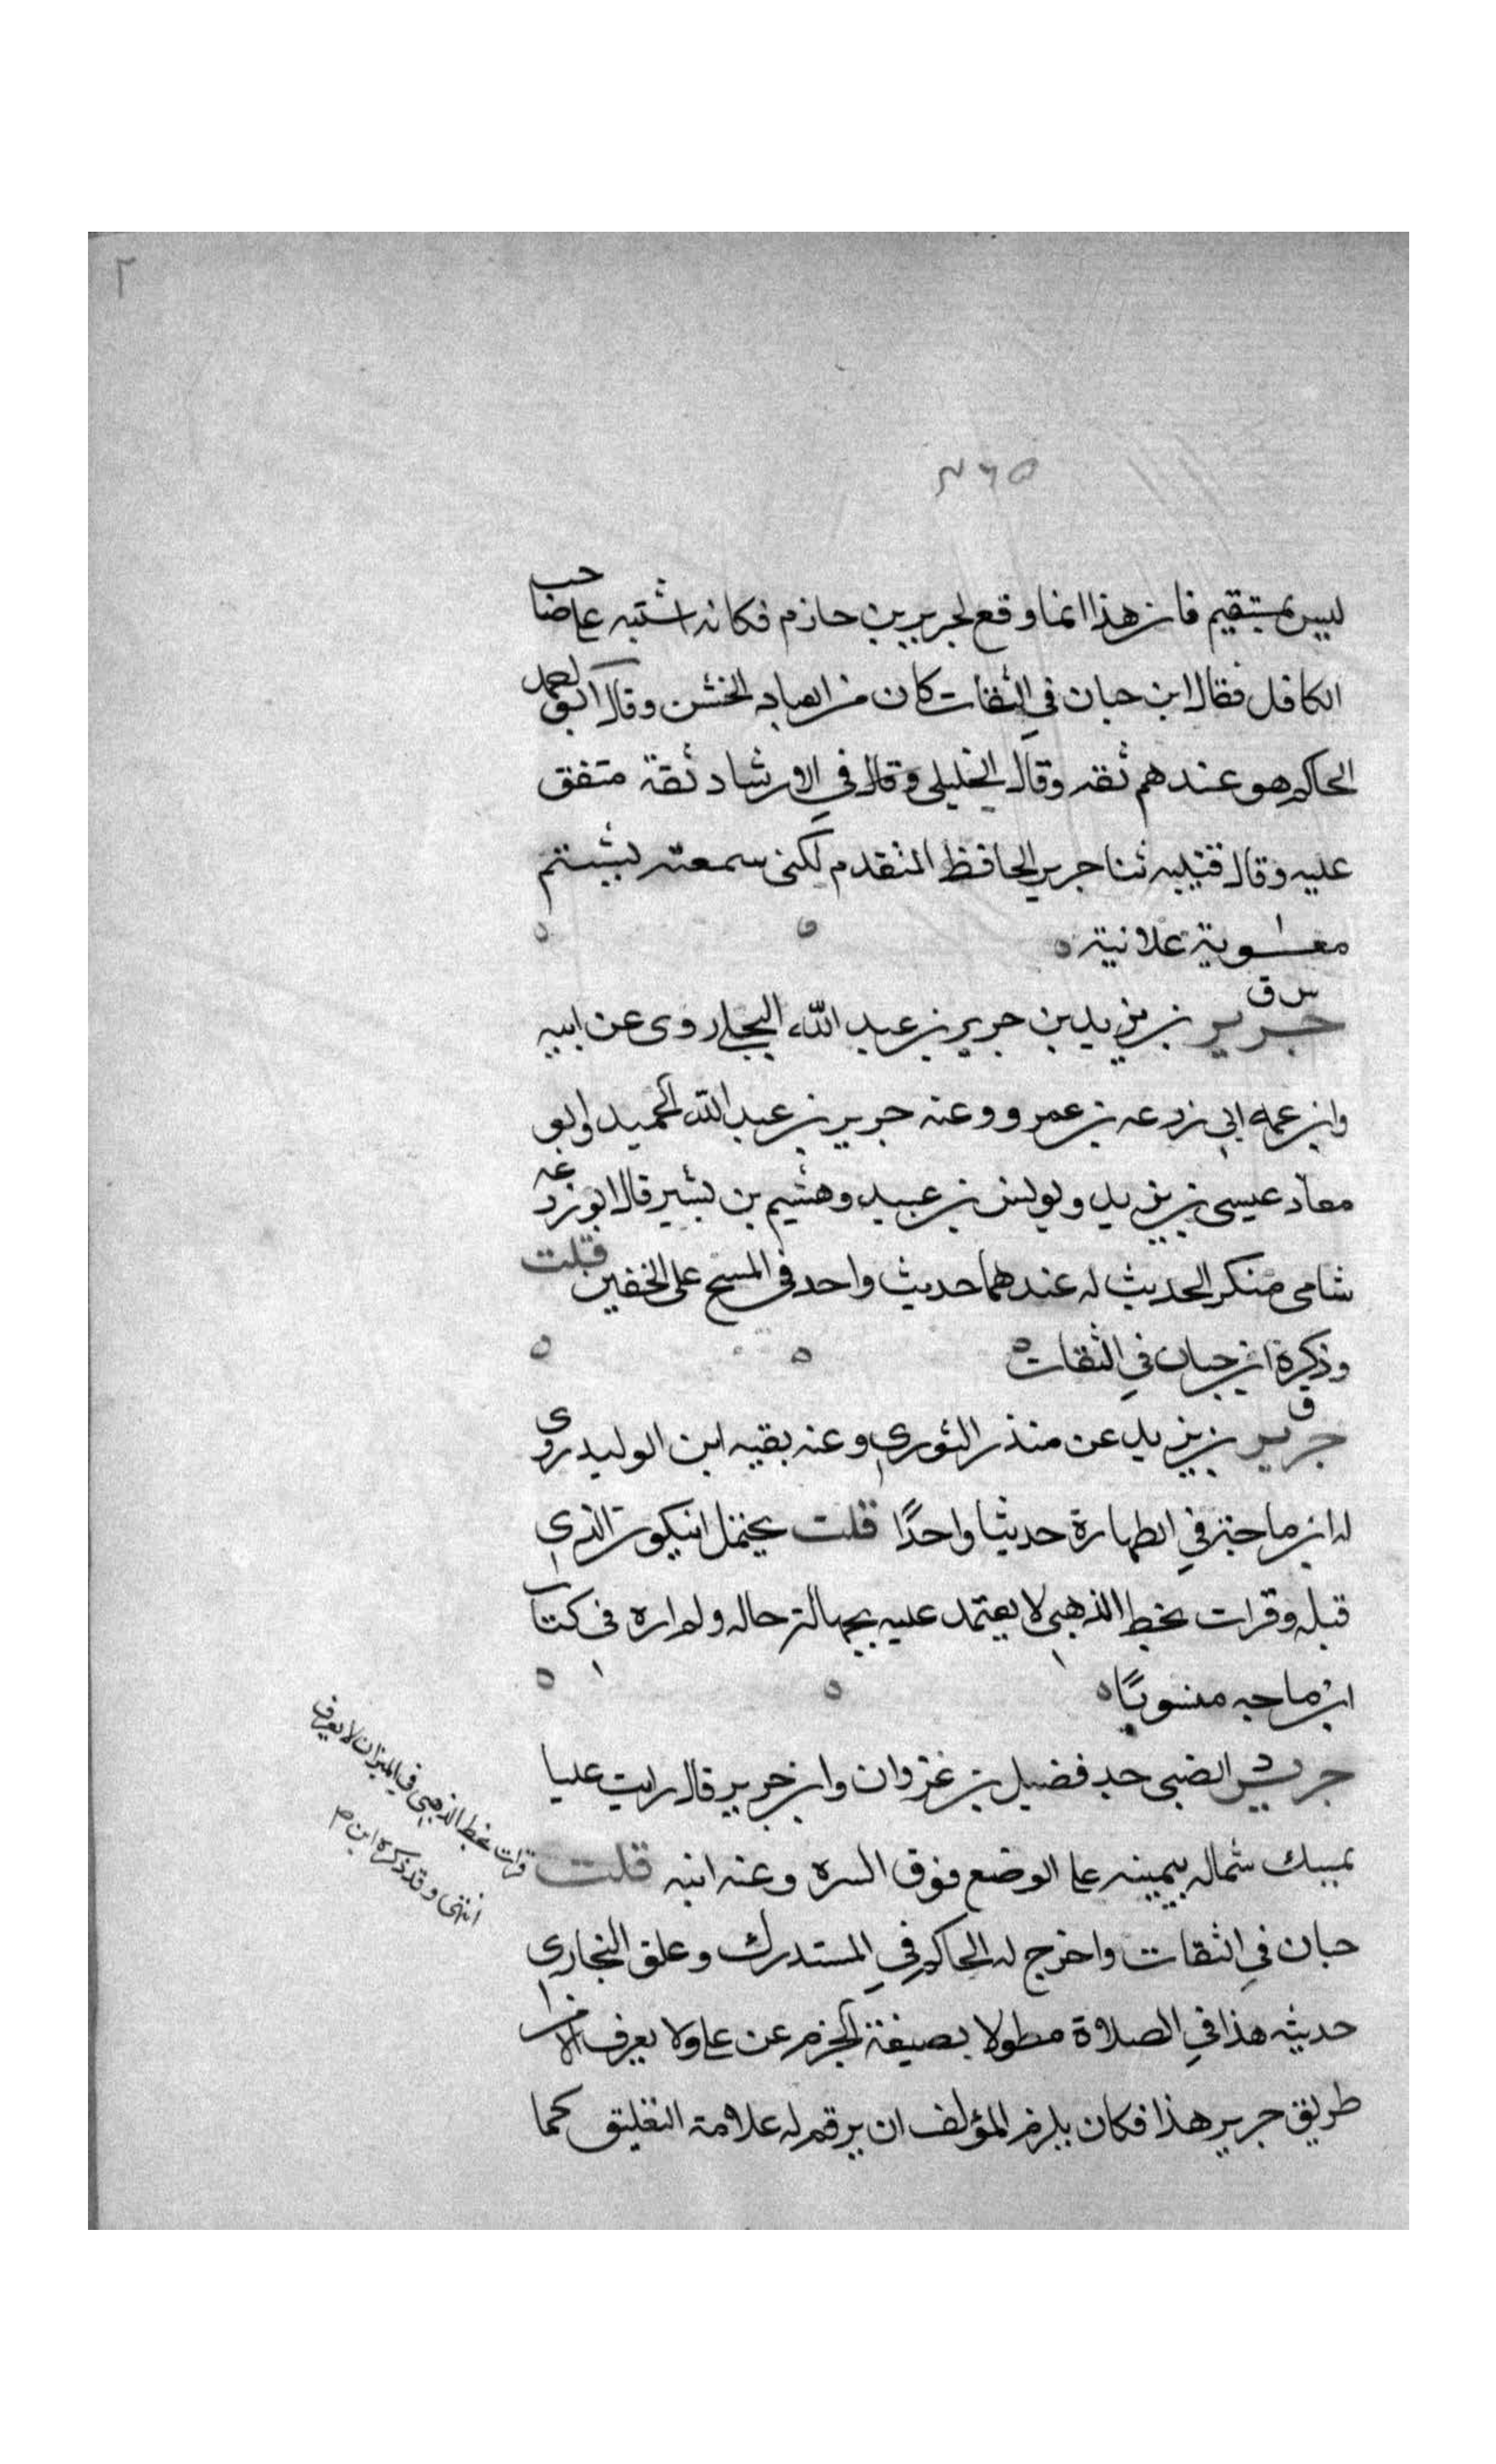 ٢
٢٦٥
ليس بمستقيم فان هذا انما وقع لجرير بن حازم فكانه اشتبه على صاحب
الكافل فقال ابن حبان في الثقات كان من العباد الخشن وقال ابو احمد
الحاكم هو عندهم ثقه وقال الخليلي وقال في الارشاد ثقة متفق
عليه وقال قتيبه ثنا جرير الحافظ المتقدم لكني سمعته يشتم
معوية علانية ه
س ق
جرير بن يزيد بن جرير بن عبد الله البجلي روى عن ابيه
وابن عمه ابي زرعه بن عمرو وعنه جرير بن عبد الله الحميد وابو
معاذ عيسى بن يزيد ويونس بن عبيد وهشيم بن بشير قال ابو زرعه
شامي منكر الحديث له عندهما حديث واحد في المسح على الخفين قلت
وذكرة ابن حبان في الثقات ه
ق
جرير بن يزيد عن منذر الثوري وعنه بقيه ابن الوليد روى
له ابن ماجة في الطهارة حديثا واحدًا قلت يحتمل ان يكون الذي
قبله وقرات بخط الذهبي لا يعتمد عليه بجهالة حاله ولم اره في كتاب
ابن ماجه منسوبًا ه
جرير الضبي جد فضيل بن غزوان وابن جرير قال رايت عليا
يمسك شماله بيمينه على الوضع فوق السره وعنه ابنه قلت
قرات بخط الذهبي في الميزان لا يعرف
انتهى وقد ذكره ابن
حبان في الثقات واخرج له الحاكم في المستدرك وعلق البخاري
حديثه هذا في الصلاة مطولا بصيغة الجزم عن على ولا يعرف الا من
طريق جرير هذا فكان يلزم المؤلف ان يرقم له علامة التعليق كما